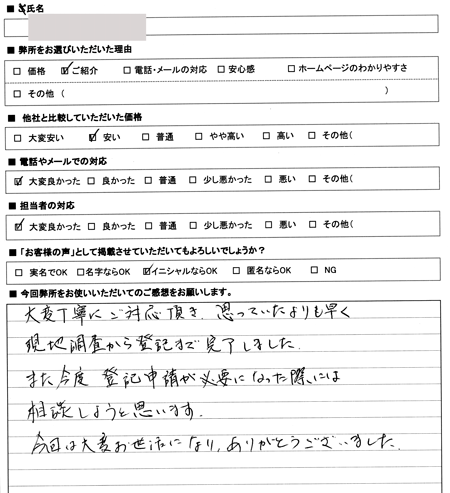 ■ お氏名
■ 弊所をお選びいただいた理由
□ 価格 ☑ ご紹介 □ 電話・メールの対応 □ 安心感 □ ホームページのわかりやすさ
□ その他 ( )
■ 他社と比較していただいた価格
□ 大変安い ☑ 安い □ 普通 □ やや高い □ 高い □ その他(
■ 電話やメールでの対応
☑ 大変良かった □ 良かった □ 普通 □ 少し悪かった □ 悪い □ その他(
■ 担当者の対応
☑ 大変良かった □ 良かった □ 普通 □ 少し悪かった □ 悪い □ その他(
■ 「お客様の声」として掲載させていただいてもよろしいでしょうか?
□ 実名でOK □ 名字ならOK ☑ イニシャルならOK □ 匿名ならOK □ NG
■ 今回弊所をお使いいただいてのご感想をお願いします。
大変丁寧にご対応頂き、思っていたよりも早く
現地調査から登記まで完了しました。
また今度 登記申請が必要になった際には
相談しようと思います。
今回は大変お世話になり、ありがとうございました。